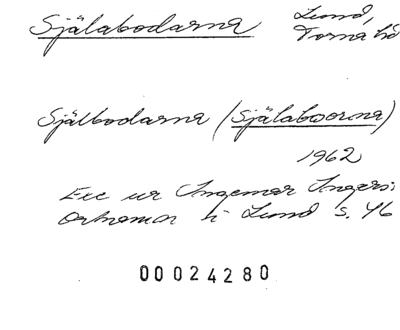 Själabodarna Lund,
Torna hd
Själbodarna (Själaboorna)
1962
Exc ur Ingemar Ingers:
Ortnamn i Lund s. 46
00024280